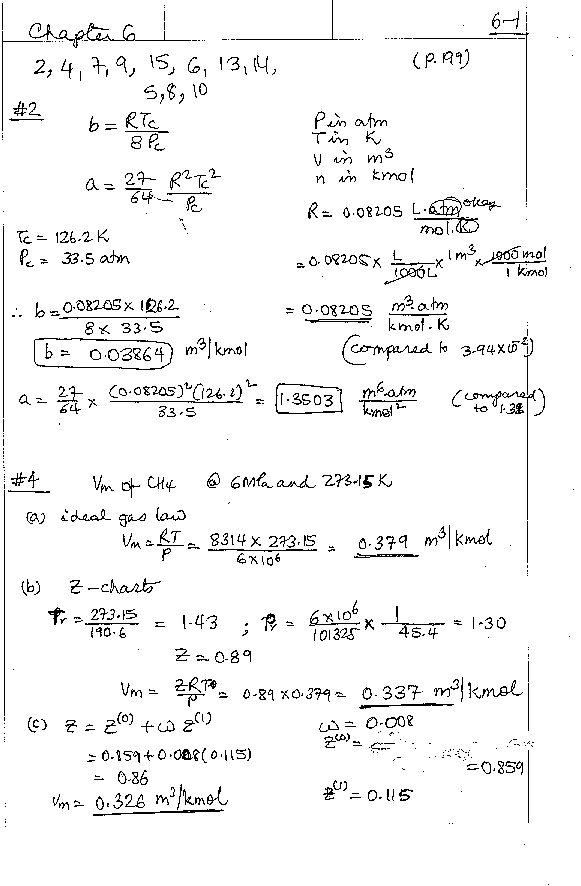 Chapter 6
6-1
2, 4, 7, 9, 15, 6, 13, 14,
5, 8, 10
(P. 199)
#2
b = RTc / 8Pc
a = 27/64 R²Tc²/Pc
P in atm
T in K
V in m³
n in kmol
R = 0.08205 L.atm / mol.K okay
Tc = 126.2 K
Pc = 33.5 atm
= 0.08205 × L/1000L × 1m³ × 1000 mol / 1 kmol
∴ b = 0.08205 × 126.2 / 8 × 33.5
= 0.08205 m³.atm / kmol.K
b = 0.03864 m³/kmol
(compared to 3.94×10⁻²)
a = 27/64 × (0.08205)²(126.2)² / 33.5 = 1.3503 m⁶ atm / kmol² (compared to 1.38)
#4 Vm of CH4 @ 6MPa and 273.15K
(a) ideal gas law
Vm = RT/P = 8314 × 273.15 / 6×10⁶ = 0.379 m³/kmol
(b) Z-charts
Tr = 273.15/190.6 = 1.43 ; Pr = 6×10⁶/101325 × 1/45.4 = 1.30
Z = 0.89
Vm = ZRT/P = 0.89 × 0.379 = 0.337 m³/kmol
(c) Z = Z⁽⁰⁾ + ω Z⁽¹⁾
ω = 0.008
= 0.859 + 0.008(0.115)
Z⁽⁰⁾ =
= 0.859
= 0.86
Vm = 0.326 m³/kmol
Z⁽¹⁾ = 0.115